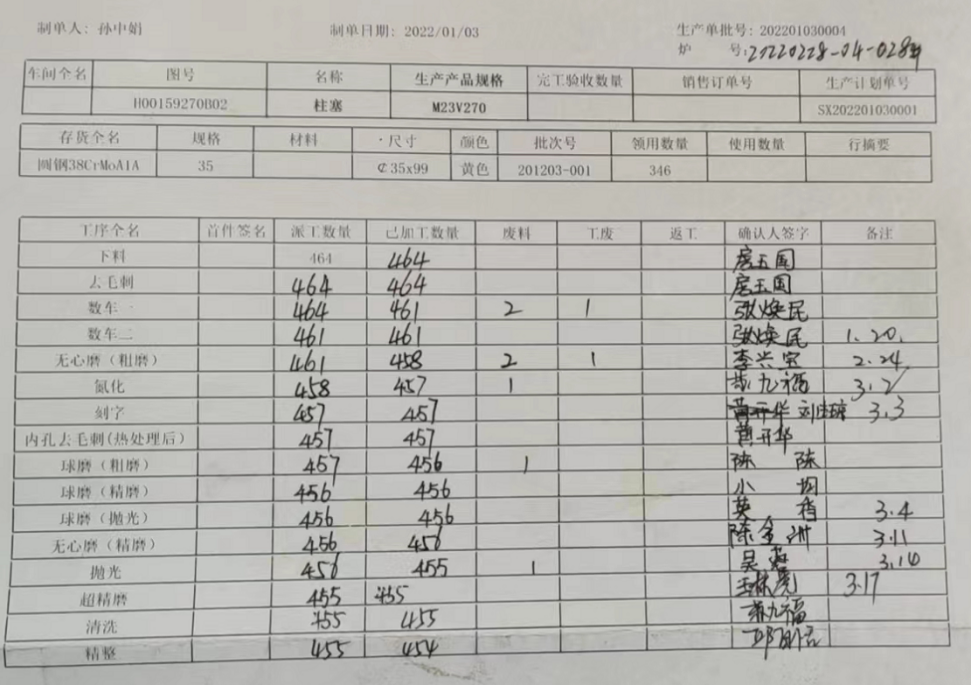 制单人: 孙中娟 制单日期: 2022/01/03 生产单批号: 202201030004
炉 号: 20220228-04-028#
车间全名 图号 名称 生产产品规格 完工验收数量 销售订单号 生产计划单号
H00159270B02 柱塞 M23V270 SX202201030001
存货全名 规格 材料 尺寸 颜色 批次号 领用数量 使用数量 行摘要
圆钢38CrMoAlA 35 ¢35x99 黄色 201203-001 346
工序全名 首件签名 派工数量 已加工数量 废料 工废 返工 确认人签字 备注
下料 464 464 房玉国
去毛刺 464 464 房玉国
数车一 464 461 2 1 张焕民
数车二 461 461 张焕民 1.20.
无心磨（粗磨） 461 458 2 1 李兴宝 2.24
氮化 458 457 1 九福 3.2
刻字 457 457 3.3
内孔去毛刺(热处理后） 457 457 开华
球磨（粗磨） 457 456 1 陈 陈
球磨（精磨） 456 456 小
球磨（抛光） 456 456 英 3.4
无心磨（精磨） 456 456 陈金洲 3.11
抛光 456 455 1 吴 3.14
超精磨 455 455 3.17
清洗 455 455 九福
精整 455 454